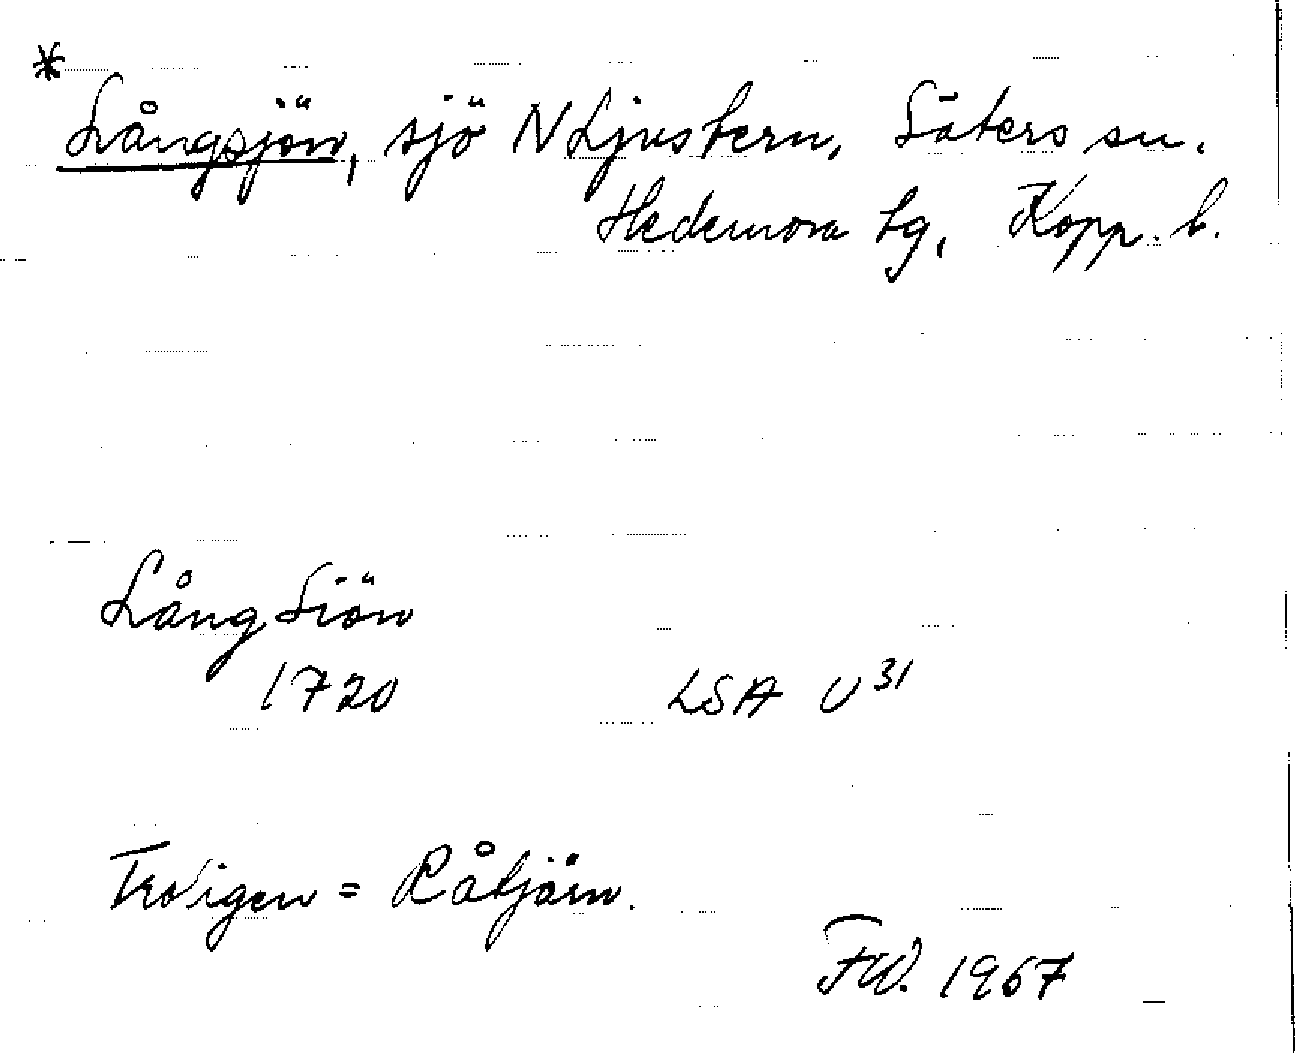 * Långsjön, sjö N Ljustern, Säters sn.
Hedemora tg, Kopp. l.
Lång Siön
1720 LSA U 31
Troligen = Råtjärn.
FW. 1967